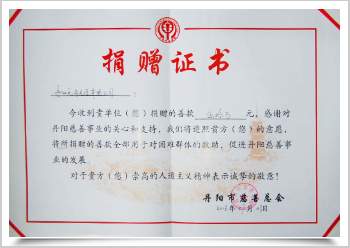 捐赠证书
今收到贵单位（您）捐赠的善款 元，感谢对
丹阳慈善事业的关心和支持，我们将遵照贵方（您）的意愿，
将所捐赠的善款全部用于对困难群体的救助，促进丹阳慈善事
业的发展。
对于贵方（您）崇高的人道主义精神表示诚挚的敬意！
丹阳市慈善总会